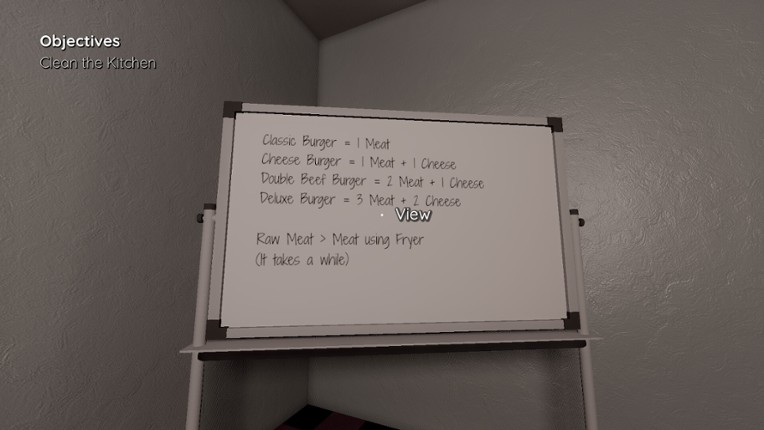 Objectives
Clean the Kitchen
Classic Burger = 1 Meat
Cheese Burger = 1 Meat + 1 Cheese
Double Beef Burger = 2 Meat + 1 Cheese
Deluxe Burger = 3 Meat + 2 Cheese
View
Raw Meat > Meat using Fryer
(It takes a while)